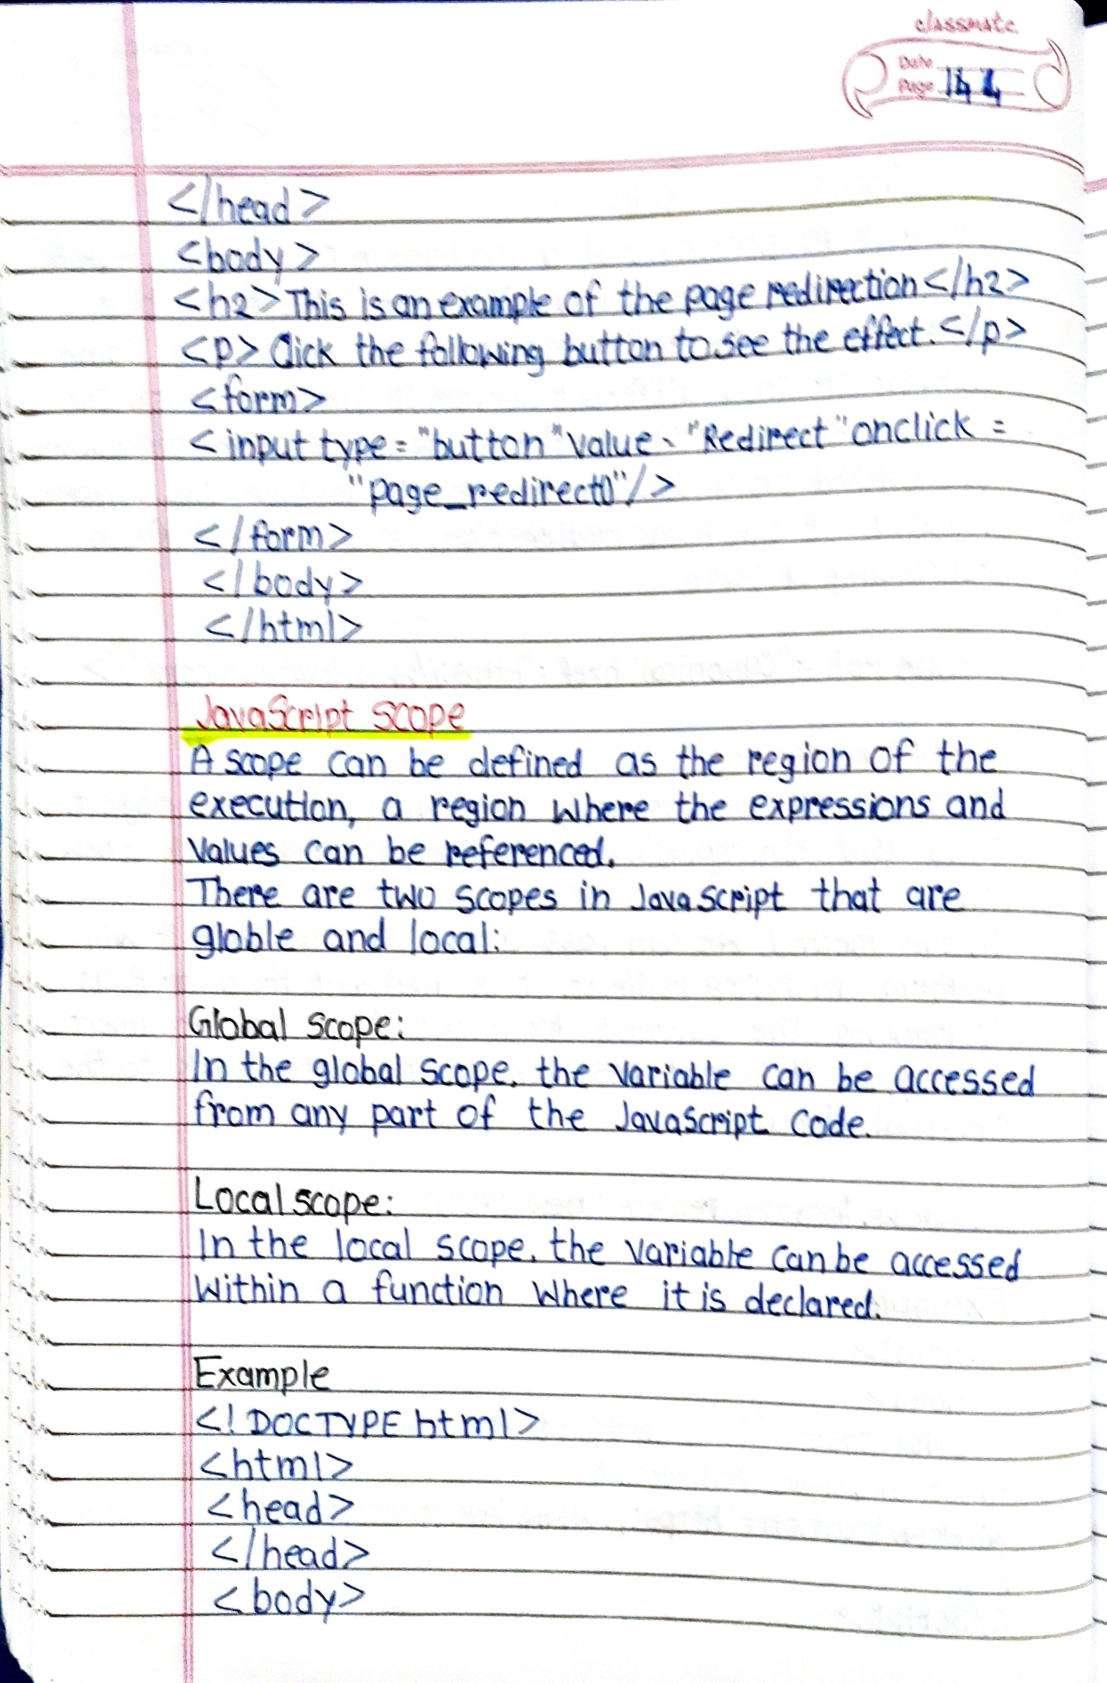 classmate
Date
Page 144
</head>
<body>
<h2> This is an example of the page redirection </h2>
<p> Click the following button to see the effect. </p>
<form>
<input type = "button" value - "Redirect" onclick =
"page_redirect()"/>
</form>
</body>
</html>
JavaScript scope
A scope can be defined as the region of the
execution, a region where the expressions and
values can be referenced.
There are two scopes in JavaScript that are
globle and local:
Global scope:
In the global scope, the variable can be accessed
from any part of the JavaScript code.
Local scope:
In the local scope, the variable can be accessed
within a function where it is declared.
Example
<!DOCTYPE html>
<html>
<head>
</head>
<body>